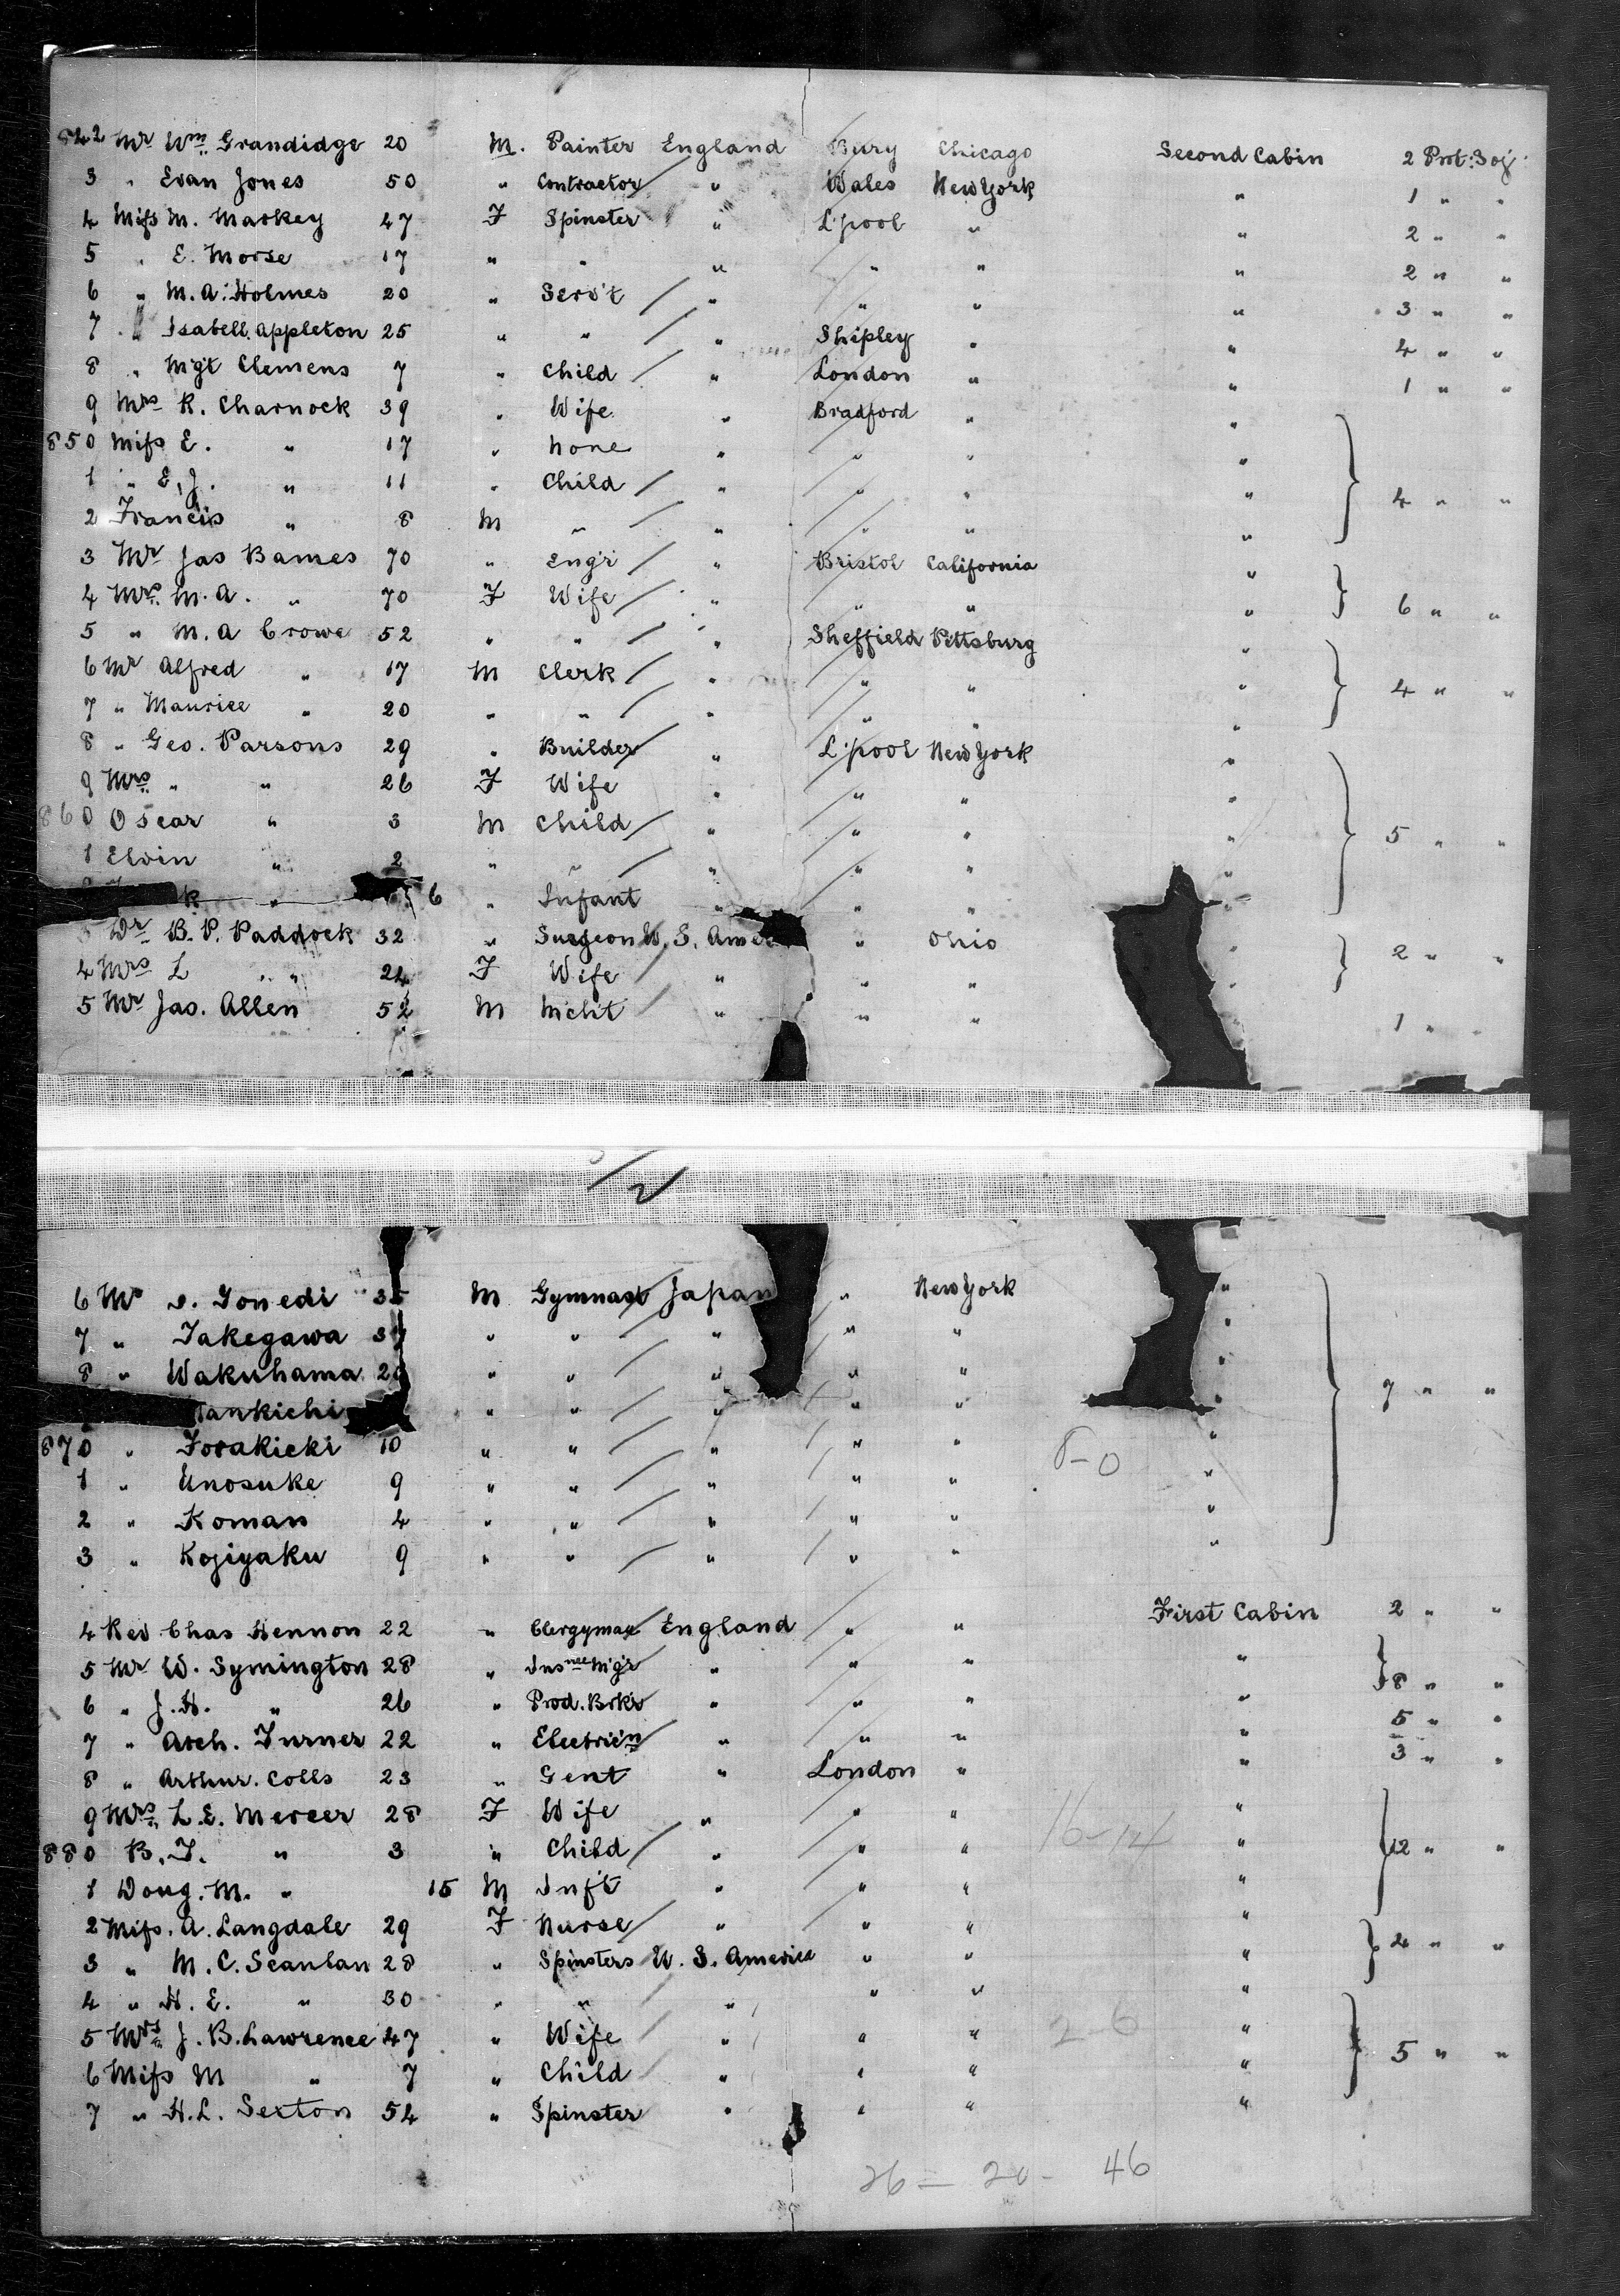 842 Mr Wm Grandidge 20 M. Painter England Bury Chicago Second Cabin 2 Prot: Soj
3 " Evan Jones 50 " Contractor " Wales New York " 1 " "
4 Miss M. Markey 47 F Spinster " L'pool " " 2 " "
5 " E. Morse 17 " " " " " " 2 " "
6 " M. A. Holmes 20 " Serv't " " " " 3 " "
7 " Isabell Appleton 25 " " " Shipley " " 4 " "
8 " Mgt Clemens 7 " Child " London " " 1 " "
9 Mrs R. Charnock 39 " Wife " Bradford " "
850 Miss E. " 17 " None " " " "
1 " E. J. " 11 " Child " " " " 4 " "
2 Francis " 8 M " " " " "
3 Mr Jas Barnes 70 " Eng'r " Bristol California "
4 Mrs M. A. " 70 F Wife " " " " 6 " "
5 " M. A Crowe 52 " " " Sheffield Pittsburg "
6 Mr Alfred " 17 M Clerk " " " " 4 " "
7 " Maurice " 20 " " " " " "
8 " Geo. Parsons 29 " Builder " L'pool New York "
9 Mrs " " 26 F Wife " " " "
860 Oscar " 3 M Child " " " " 5 " "
1 Elvin " 2 " " " " " "
k " 6 " Infant " " " "
Dr B. P. Paddock 32 " Surgeon U. S. Amer " Ohio " 2 " "
4 Mrs L " " 24 F Wife " " " "
5 Mr Jas. Allen 52 M Mcht " " " 1 " "
2
6 Mr Gonedi 35 M Gymnast Japan " New York "
7 " Takegawa 37 " " " " " "
8 " Wakuhama " " " " " "
Tankichi " " " " " " 7 " "
870 " Torakicki 10 " " " " " " 8-0
1 " Unosuke 9 " " " " " "
2 " Koman 4 " " " " " "
3 " Kojiyaku 9 " " " " " "
4 Rev Chas Hennon 22 " Clergyman England " " First Cabin 2 " "
5 Mr W. Symington 28 " Insnce Mg'r " " " "
6 " J. H. " 26 " Prod. Brk'r " " " " 8 " "
7 " Arch. Turner 22 " Electric'n " " " " 5 " "
8 " Arthur. Colls 23 " Gent " London " " 3 " "
9 Mrs L. E. Mercer 28 F Wife " " " "
880 B. T. " 3 " Child " " " 16-14 " 12 " "
1 Doug. M. " 15 M Inf't " " " "
2 Miss. A. Langdale 29 F Nurse " " " "
3 " M. C. Scanlan 28 " Spinsters U. S. America " " " 2 " "
4 " H. E. " 30 " " " " " "
5 Mrs J. B. Lawrence 47 " Wife " " " 2-6 "
6 Miss M " 7 " Child " " " " 5 " "
7 " H. L. Sexton 54 " Spinster " " " "
26 = 20 - 46